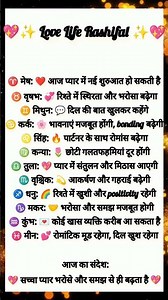 💖✨ Love Life Rashifal ✨💖
♈ मेष: ❤️ आज प्यार में नई शुरुआत हो सकती है
♉ वृषभ: 💞 रिश्ते में स्थिरता और भरोसा बढ़ेगा
♊ मिथुन: 💬 दिल की बात खुलकर कहेंगे
♋ कर्क: 🌸 भावनाएं मजबूत होंगी, bonding बढ़ेगी
♌ सिंह: 🔥 पार्टनर के साथ रोमांस बढ़ेगा
♍ कन्या: 🌷 छोटी गलतफहमियां दूर होंगी
♎ तुला: 💖 प्यार में संतुलन और मिठास आएगी
♏ वृश्चिक: 💫 आकर्षण और गहराई बढ़ेगी
♐ धनु: 🌈 रिश्ते में खुशी और positivity रहेगी
♑ मकर: 🤝 भरोसा और समझ मजबूत होगी
♒ कुंभ: 💌 कोई खास व्यक्ति करीब आ सकता है
♓ मीन: 💕 रोमांटिक मूड रहेगा, दिल खुश रहेगा
आज का संदेश:
💖 सच्चा प्यार भरोसे और समझ से ही बढ़ता है 💖